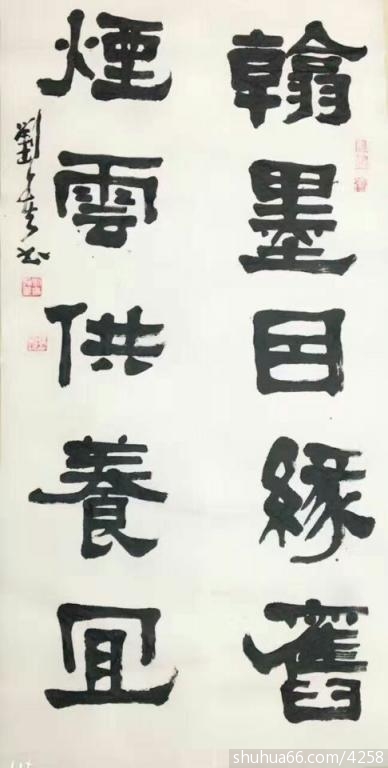 翰墨因緣舊
煙雲供養宜
劉
shuhua66.com/4258